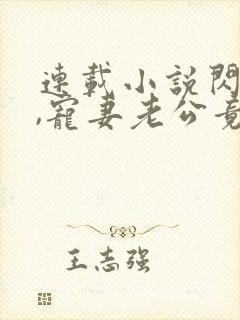 連載小說閃
,寵妻老公竟
王志强